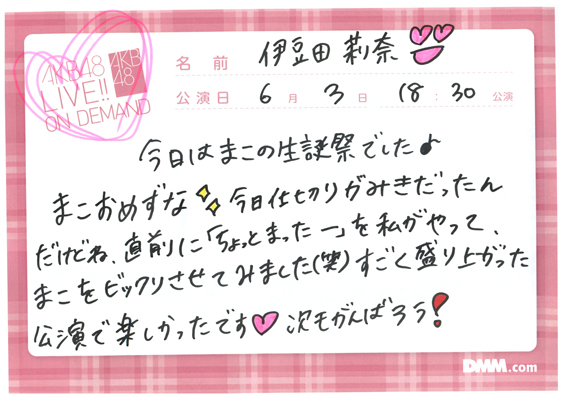 AKB48
LIVE!!
ON DEMAND
AKB
48
名前 伊豆田 莉奈
公演日 6月 3日 18:30公演
今日はまこの生誕祭でした♪
まこおめずな 今日仕切りがみきだったん
だけどね、直前に「ちょっとまったー」を私がやって、
まこをビックリさせてみました(笑)すごく盛り上がった
公演で楽しかったです 次もがんばろう!
DMM.com